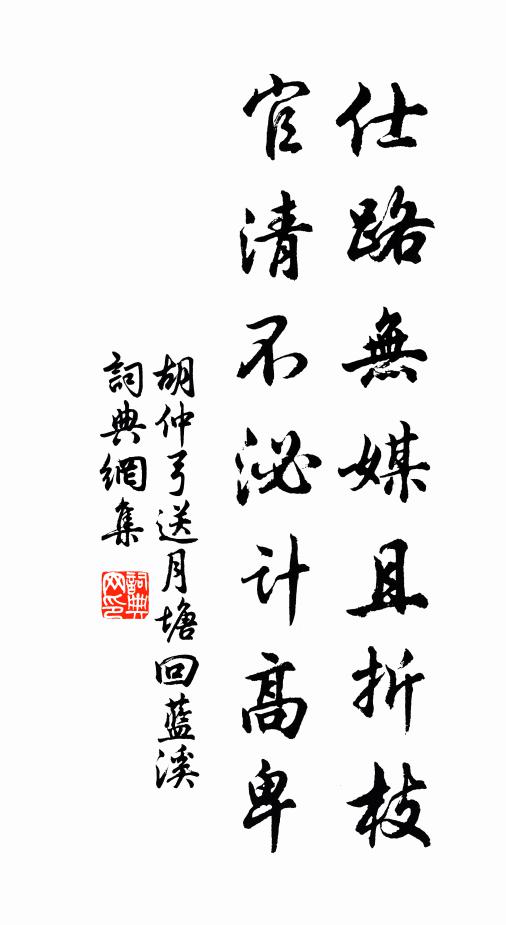 仕路無媒且折枝
官清不泌計高卑
胡仲弓送月塘回藍溪
詞典網集
詞典网印